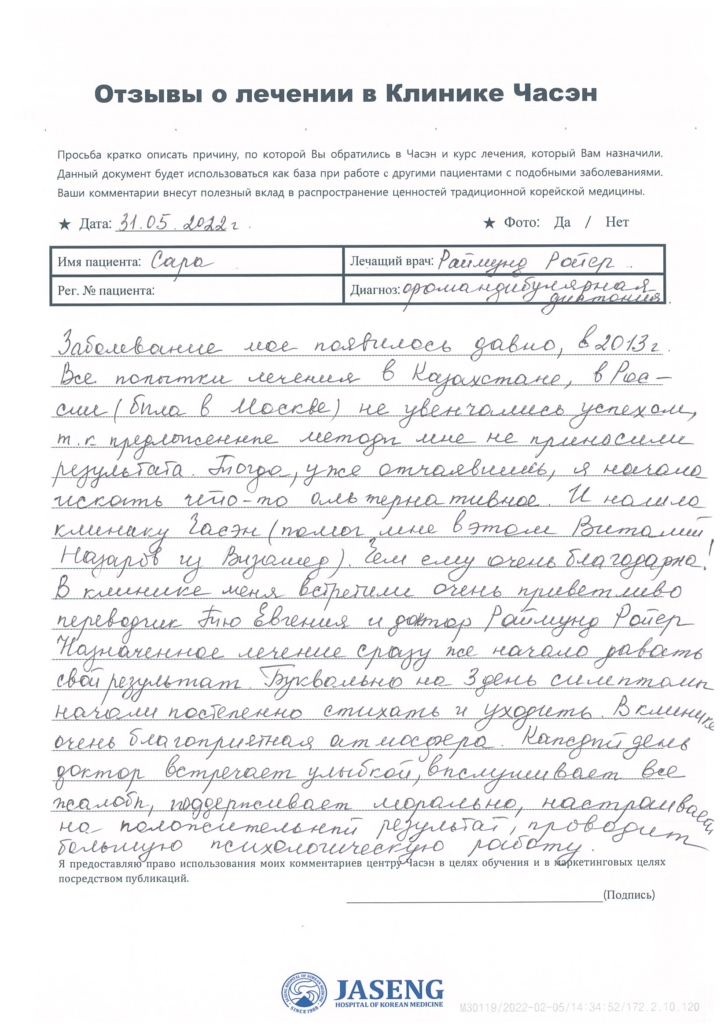 Отзывы о лечении в Клинике Часэн
Просьба кратко описать причину, по которой Вы обратились в Часэн и курс лечения, который Вам назначили.
Данный документ будет использоваться как база при работе с другими пациентами с подобными заболеваниями.
Ваши комментарии внесут полезный вклад в распространение ценностей традиционной корейской медицины.
★ Дата: 31.05.2022г. ★ Фото: Да / Нет
Имя пациента: Сара Лечащий врач: Раймунд Ройер.
Рег. № пациента: Диагноз: оромандибулярная
дистония.
Заболевание мое появилось давно, в 2013г.
Все попытки лечения в Казахстане, в Рос-
сии (была в Москве) не увенчались успехом,
т.к предложенные методы мне не приносили
результата. Тогда, уже отчаявшись, я начала
искать что-то альтернативное. И нашла
клинику Часэн (помог мне в этом Виталий
Назаров из Визамед). Чем ему очень благодарна!
В клинике меня встретили очень приветливо
переводчик Тю Евгения и доктор Раймунд Ройер
Назначенное лечение сразу же начало давать
свой результат. Буквально на 3 день симптомы
начали постепенно стихать и уходить. В клинике
очень благоприятная атмосфера. Каждый день
доктор встречает улыбкой, выслушивает все
жалобы, поддерживает морально, настраивает
на положительный результат, проводит
большую психологическую работу.
Я предоставляю право использования моих комментариев центру Часэн в целях обучения и в маркетинговых целях
посредством публикаций.
(Подпись)
JASENG HOSPITAL OF KOREAN MEDICINE SINCE 1988
JASENG
HOSPITAL OF KOREAN MEDICINE
M30119/2022-02-05/14:34:52/172.2.10.120